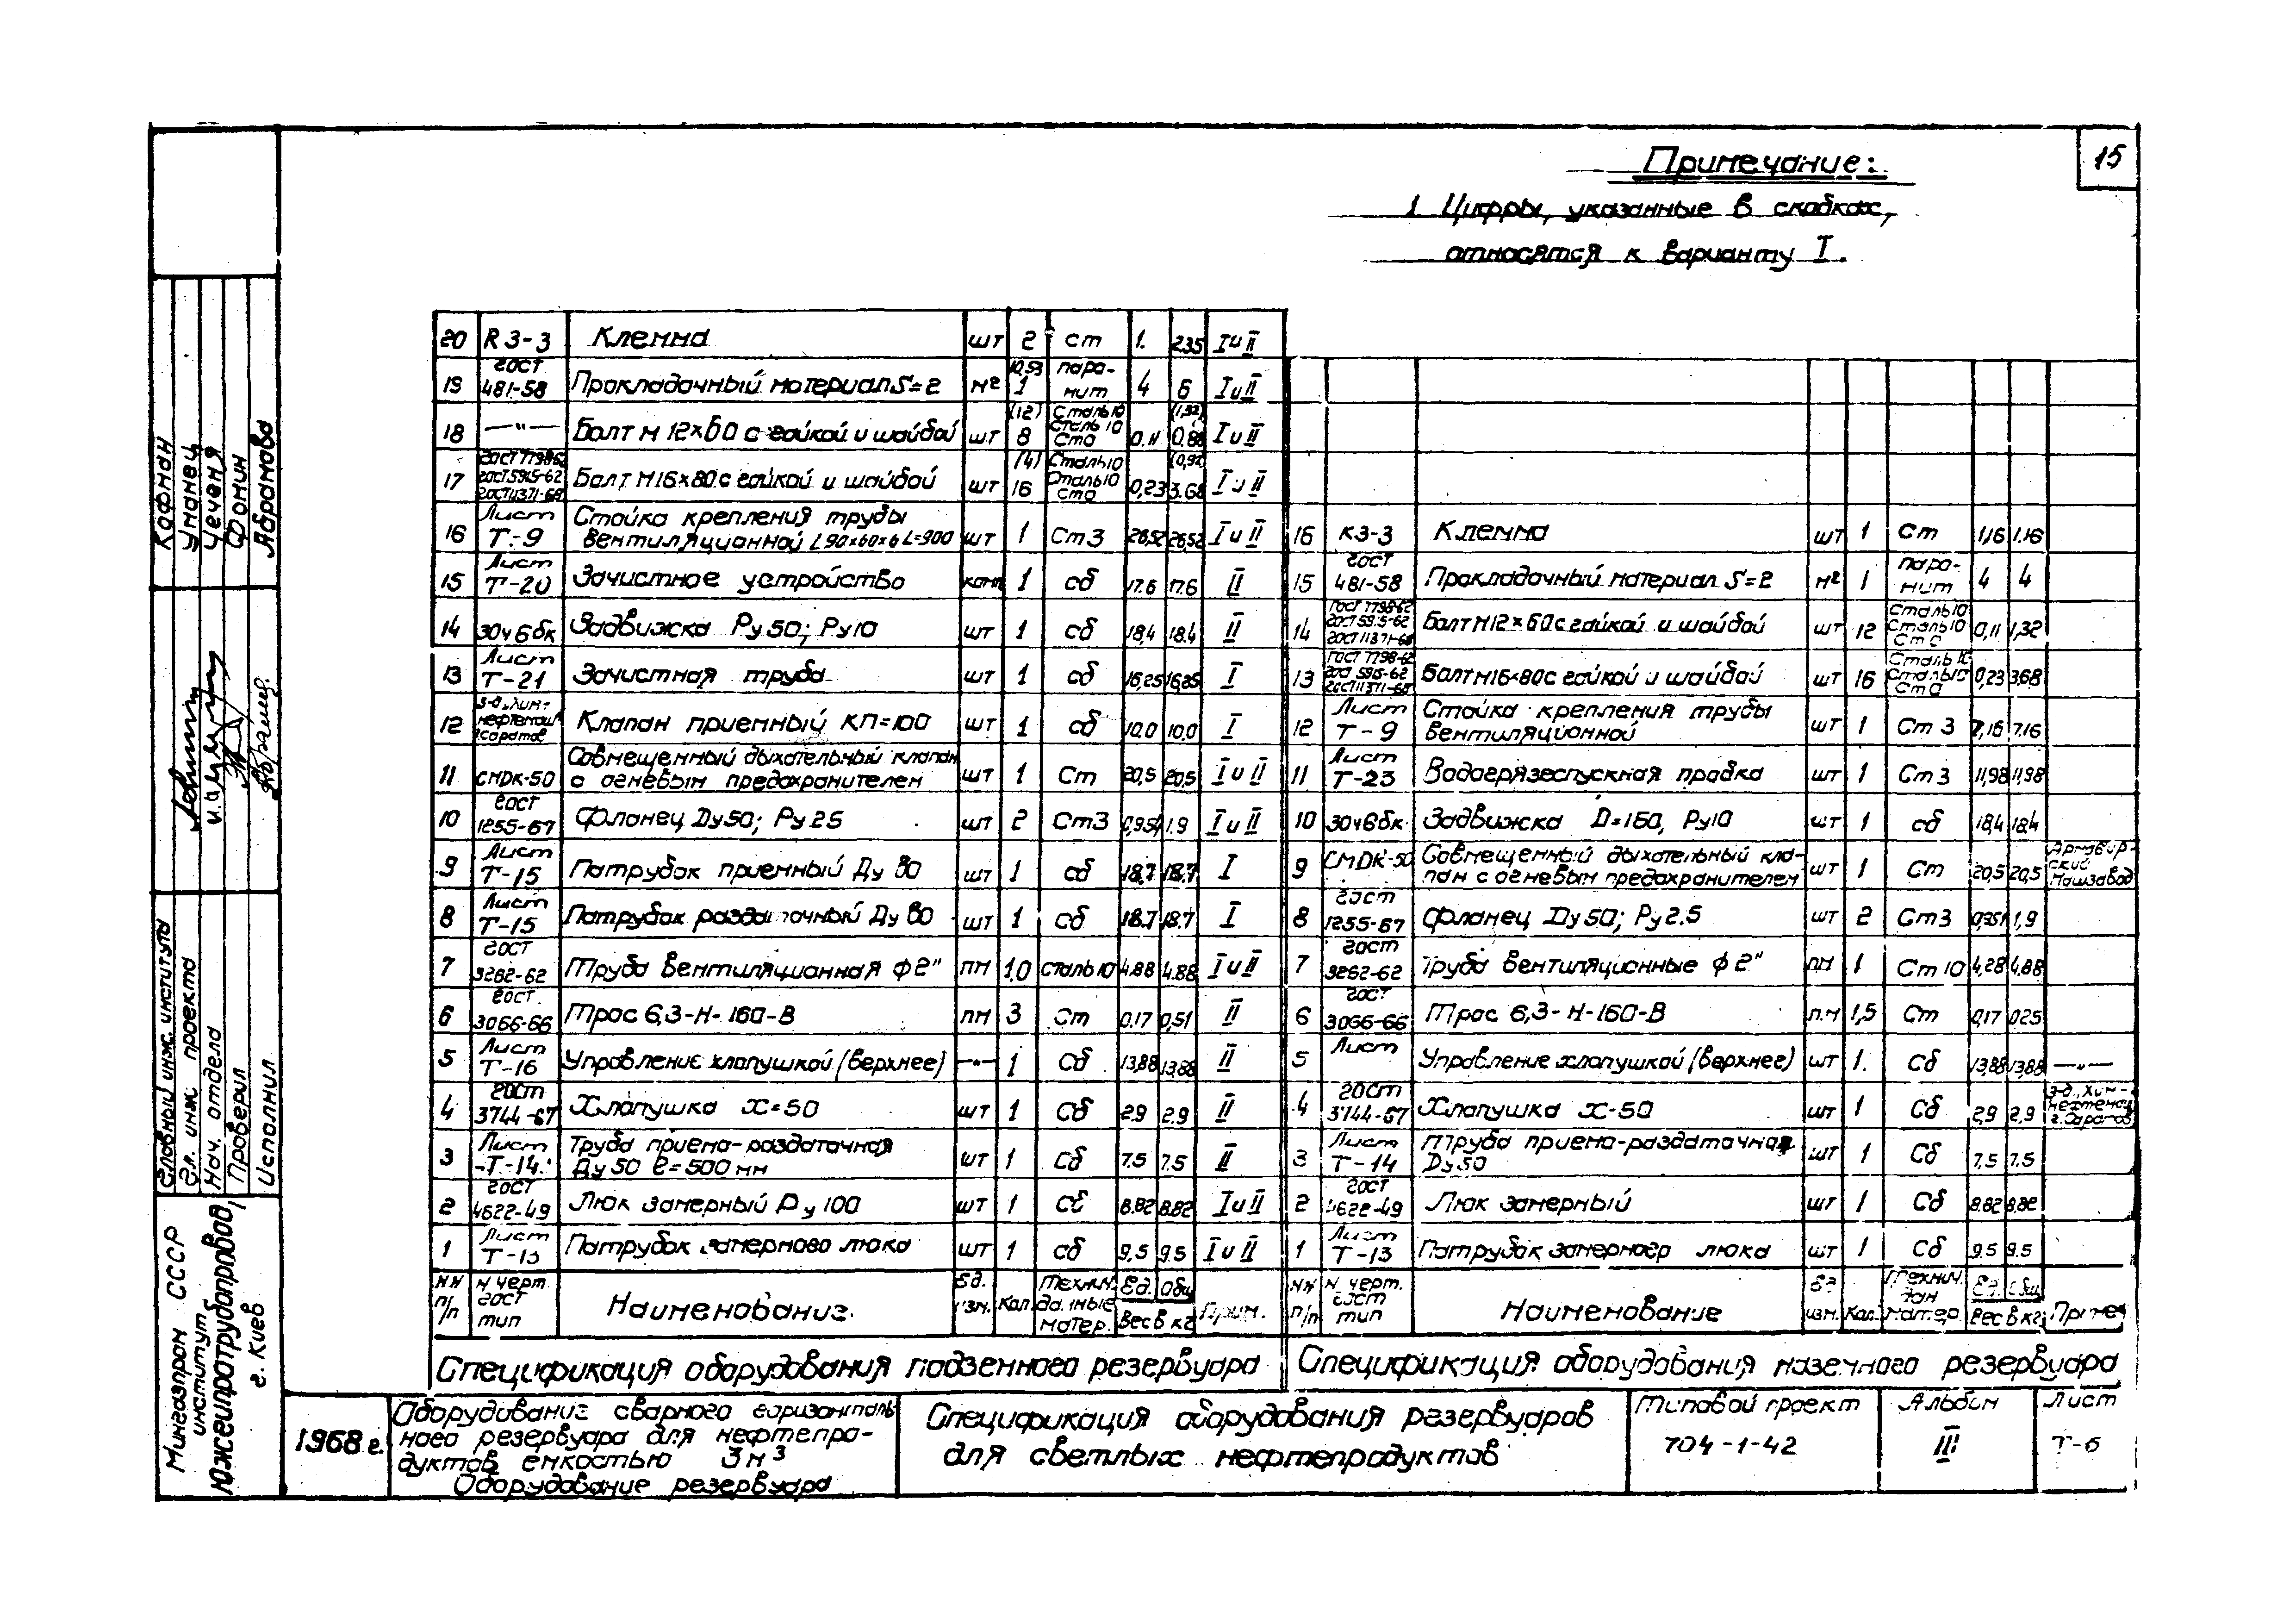 15
Примечание:
1. Цифры, указанные в скобках,
относятся к варианту I.
20 R3-3 Клемма шт 2 ст 1. 2.35 I и II
19 гост 481-58 Прокладочный материал S=2 м2 1 паронит 4 6 I и II
18 —"— Болт м 12×60 с гайкой и шайбой шт (12) 8 Сталь 10 Сталь 10 Ст0 0.11 (1,32) 0.88 I и II
17 гост 7798-62 гост 5915-62 гост 11371-68 Болт М16×80 с гайкой и шайбой шт (4) 16 Сталь 10 Сталь 10 Ст0 0,23 (0,92) 3.68 I и II
16 Лист Т-9 Стойка крепления трубы вентиляционной L90×60×6 L=900 шт 1 Ст3 26,52 26,52 I и II
15 Лист Т-20 Зачистное устройство комп 1 сб 17.6 17.6 II
14 30ч6бк Задвижка Ру50; Ру10 шт 1 сб 18,4 18.4 II
13 Лист Т-21 Зачистная труба шт 1 сб 16,25 16,25 I
12 з-д „Хим-нефтемаш" Саратов Клапан приемный КП=100 шт 1 сб 10.0 10.0 I
11 СМДК-50 Совмещенный дыхательный клапан с огневым предохранителем шт 1 Ст 20,5 20,5 I и II
10 гост 1255-67 Фланец Ду50; Ру25 шт 2 Ст3 0,951 1.9 I и II
9 Лист Т-15 Патрубок приемный Ду 80 шт 1 сб 18.7 18.7 I
8 Лист Т-15 Патрубок раздаточный Ду 80 шт 1 сб 18.7 18.7 I
7 гост 3262-62 Труба вентиляционная ф 2" пм 1.0 сталь 10 4.88 4.88 I и II
6 гост 3066-66 Трос 6,3-Н-160-В пм 3 Ст 0.17 0,51 II
5 Лист Т-16 Управление хлопушкой (верхнее) —"— 1 Сб 13,88 13.88 II
4 гост 3744-67 Хлопушка Х=50 шт 1 Сб 2.9 2.9 II
3 Лист Т-14 Труба приемо-раздаточная Ду 50 l=500 мм шт 1 Сб 7.5 7.5 II
2 гост 4622-49 Люк замерный Ру 100 шт 1 Сб 8.82 8.82 I и II
1 Лист Т-13 Патрубок замерного люка шт 1 сб 9,5 9.5 I и II
NN п/п N черт. гост тип Наименование. Ед. изм. Кол. Технич. данные матер. Ед. Общ Вес в кг Прим.
Спецификация оборудования подземного резервуара
16 К3-3 Клемма шт 1 Ст 1,16 1.16
15 гост 481-58 Прокладочный материал S=2 м2 1 паронит 4 4
14 Гост 7798-62 гост 5915-62 гост 11371-68 Болт М12×60 с гайкой и шайбой шт 12 Сталь 10 Сталь 10 Ст 0 0,11 1,32
13 Гост 7798-62 гост 5915-62 гост 11371-68 Болт М16×80 с гайкой и шайбой шт 16 Сталь 10 Сталь 10 Ст 0 0,23 3,68
12 Лист Т-9 Стойка крепления трубы вентиляционной шт 1 Ст 3 7,16 7.16
11 Лист Т-23 Водогрязеспускная пробка шт 1 Ст 3 11,98 11,98
10 30ч6бк Задвижка D=150, Ру10 шт 1 сб 18,4 18.4
9 СМДК-50 Совмещенный дыхательный клапан с огневым предохранителем шт 1 Ст 20,5 20,5 Армавирский машзавод
8 гост 1255-67 Фланец Ду 50; Ру 2.5 шт 2 Ст3 0,951 1,9
7 гост 3262-62 Труба вентиляционные ф 2" пм 1 Ст 10 4,28 4,88
6 гост 3066-66 Трос 6,3-Н-160-В п.м 1,5 Ст 0,17 0.25
5 Лист Управление хлопушкой (верхнее) шт 1. Сб 13,88 13,88 —"—
4 гост 3744-67 Хлопушка Х-50 шт 1 Сб 2,9 2,9 з-д „Хим-нефтемаш г. Саратов
3 Лист Т-14 Труба приемо-раздаточная Ду50 шт 1 Сб 7,5 7.5
2 гост 4622-49 Люк замерный шт 1 Сб 8.82 8,82
1 Лист Т-13 Патрубок замерного люка шт 1 Сб 9.5 9.5
NN п/п N черт. гост тип Наименование Ед изм. Кол. Технич. дан матер. Ед. Общ Вес в кг Примеч
Спецификация оборудования наземного резервуара
1968 г.
Оборудование сварного горизонталь
ного резервуара для нефтепро-
дуктов емкостью 3м3
Оборудование резервуара
Спецификация оборудования резервуаров
для светлых нефтепродуктов
Типовой проект
704-1-42
Альбом
III
Лист
Т-6
Мингазпром СССР
институт
Южгипротрубопровод
г. Киев
Главный инж. института Кофман
Гл. инж проекта Уманец
Нач. отдела Чеченя
Проверил Фомин
Исполнил Абрамова